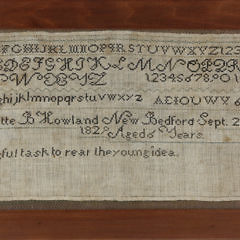 EFGHIJKLMNOPQRSTUVWXYZ123
EDEFGHIKLMNOPQR
WXYZ 1234567890
ghijklmnopqrstuvwxyz AEIOUWY
tte B Howland New Bedford Sept. 2
182 Aged 8 Years.
ful task to rear the young idea.